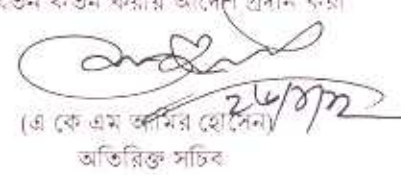 কর্তন করার আদেশ প্রদান করা
(এ কে এম আমির হোসেন)
অতিরিক্ত সচিব